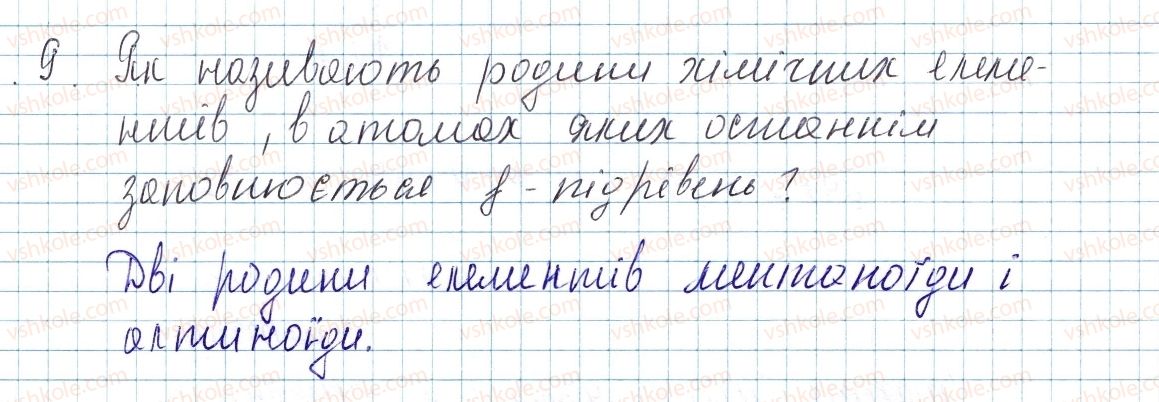 9. Як називають родини хімічних елеме-
нтів, в атомах яких останнім
заповнюється f-підрівень?
Дві родини елементів лентаноїди і
алтиноїди.
vshkole.com